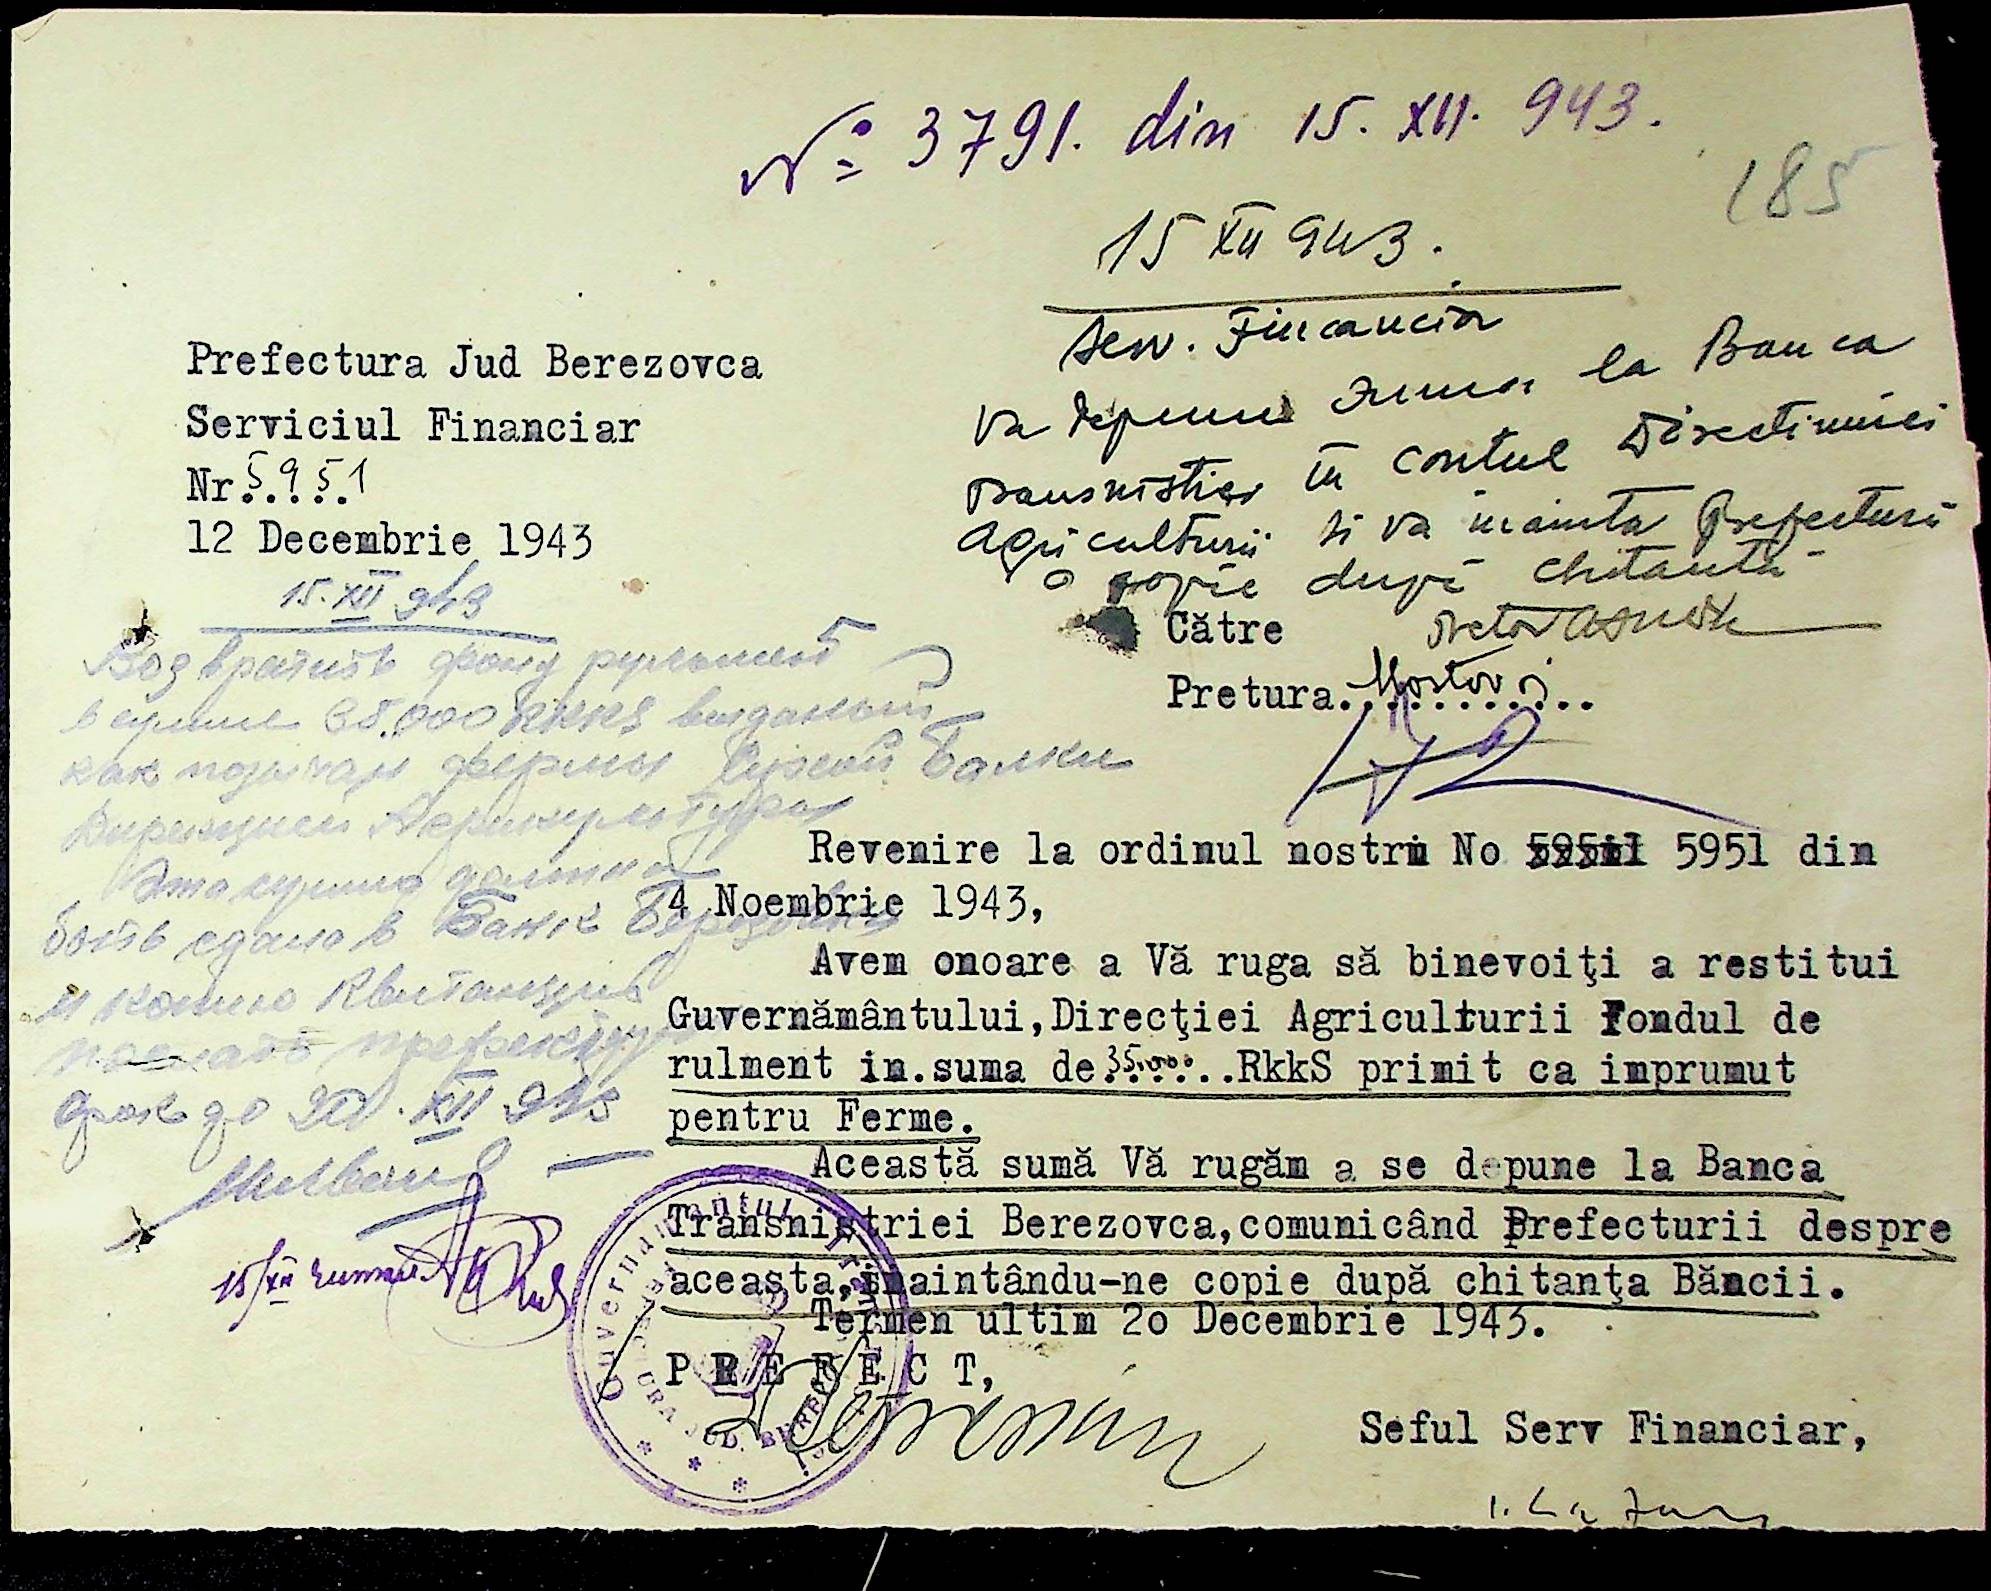 № 3791. din 15. XII. 943.
185
15 XII 943.
Serv. Financiar
va depune suma la Banca
Transnistriei în contul Directiunei
Agriculturii si va inainta Prefecturii
o copie după chitantă
Pretor
Prefectura Jud Berezovca
Serviciul Financiar
Nr.5951
12 Decembrie 1943
15.XII 943
Возвратить фонд
в сумме 35.000 RKKS выданный
как фермы Балки
Дирекцией Агрикультуры
Эта сумма должна
быть сдана в Банк Березовки
и копию квитанции
послать префектуре
срок до 20.XII 943
15/XII
Către
Pretura Mostovoi
Revenire la ordinul nostru No 5951 din
4 Noembrie 1943,
Avem onoare a Vă ruga să binevoiţi a restitui
Guvernământului,Direcţiei Agriculturii Fondul de
rulment in.suma de 35.000..RkkS primit ca imprumut
pentru Ferme.
Această sumă Vă rugăm a se depune la Banca
Transnistriei Berezovca,comunicând Prefecturii despre
aceasta,inaintându-ne copie după chitanţa Băncii.
Termen ultim 2o Decembrie 1943.
P R E F E C T,
Seful Serv Financiar,